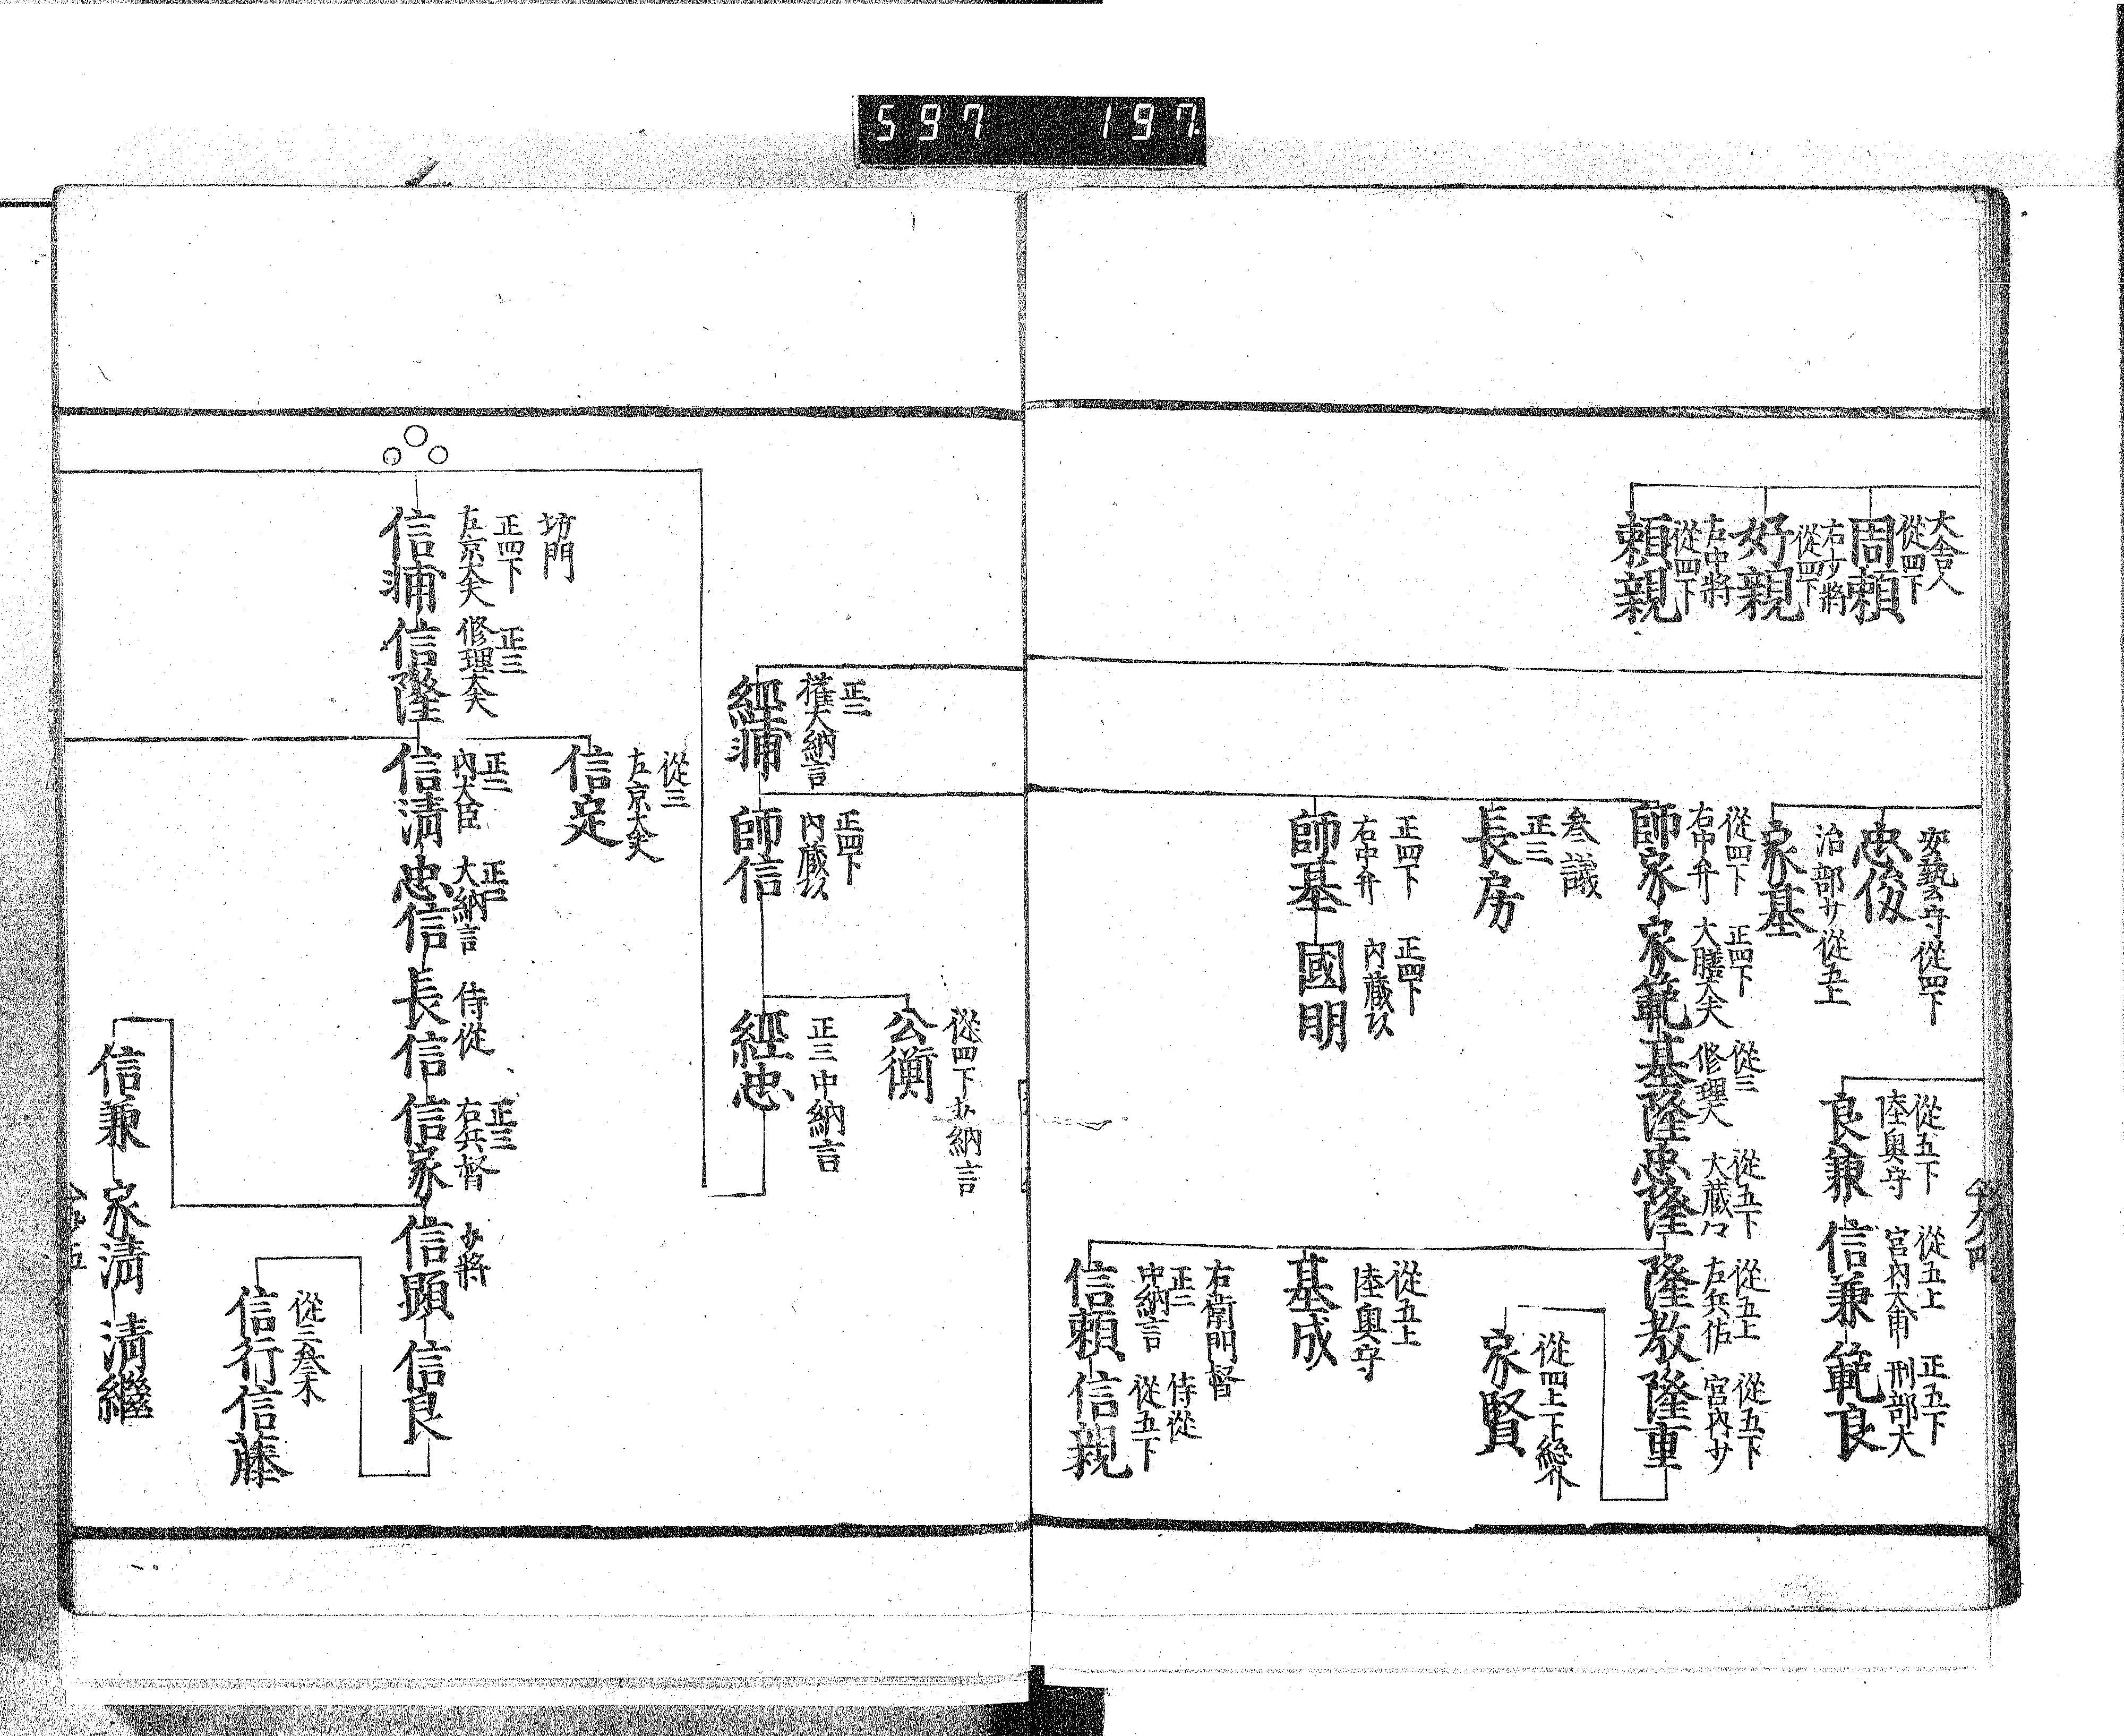 597 197
大舎人
從四下
周頼
右少將
從四下
好親
左中將
從四下
頼親
安藝守 從四下
忠俊
治部少 從五上
家基
從五下
陸奥守
良兼
從五上
信兼
正五下
刑部大
範良
從四下
右中弁
師家
正四下
大膳大夫
家範
從三
修理大
基隆
從五下
忠隆
從五上
左兵佐
隆教
從五下
宮内少
隆重
從四上
家賢
參議
正三
長房
正四下
右中弁
師基
正四下
國明
從五上
陸奥守
基成
右衛門督
正二
中納言
信頼
侍從
從五下
信親
正二
權大納言
經輔
正四下
師信
從四下少納言
公衡
正三中納言
經忠
坊門
正四下
左京大夫
信輔
正三
修理大夫
信隆
從三
左京大夫
信定
正二
内大臣
信清
正二
大納言
忠信
侍從
長信
正三
右兵督
信家
少將
信顕
信良
從三
信行
信藤
信兼
家清
清繼